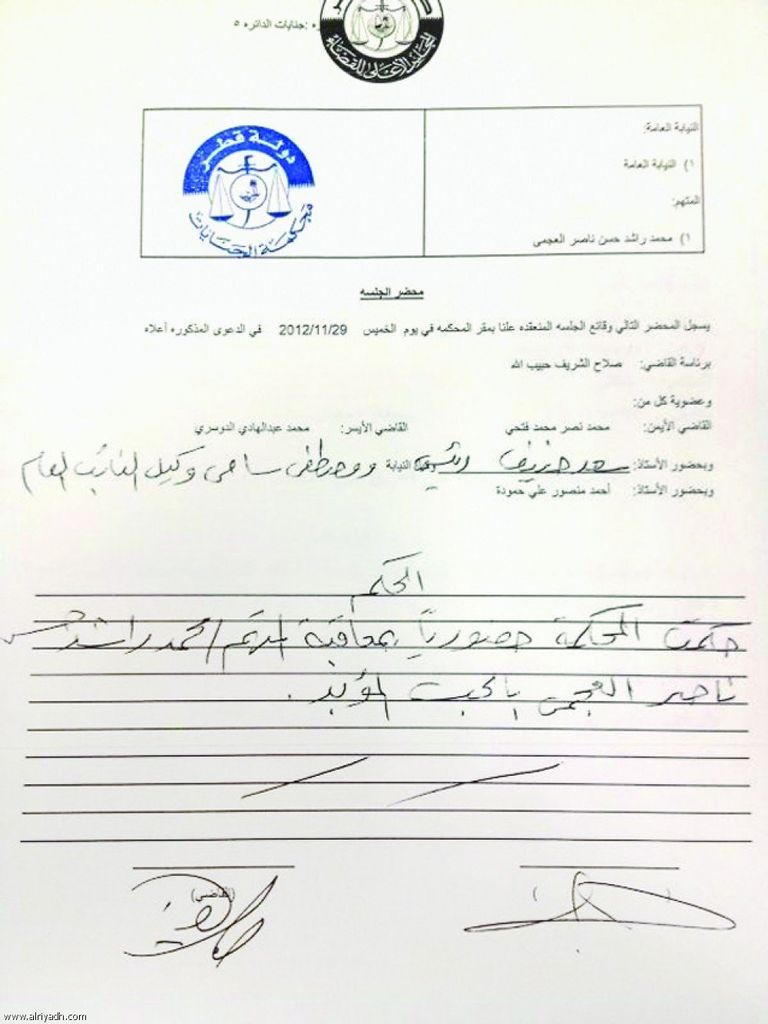 جنايات الدائره ٥
المجلس الأعلى للقضاء
النيابة العامة:
١) النيابة العامة
المتهم:
١) محمد راشد حسن ناصر العجمي
دولة قطر
محكمة الجنايات
محضر الجلسه
يسجل المحضر التالي وقائع الجلسه المنعقده علنا بمقر المحكمه في يوم الخميس 2012/11/29 في الدعوى المذكوره أعلاه
برئاسة القاضي: صلاح الشريف حبيب الله
وعضوية كل من:
القاضي الأيمن: محمد نصر محمد فتحي القاضي الأيسر: محمد عبدالهادي الدوسري
وبحضور الأستاذ: سعد النيابة ومصطفى سامي وكيل النائب العام
وبحضور الأستاذ: أحمد منصور علي حمودة
الحكم
حكمت المحكمة حضورياً بمعاقبة المتهم / محمد راشد حسن
ناصر العجمي بالحبس المؤبد.
(القاضي)
www.alriyadh.com